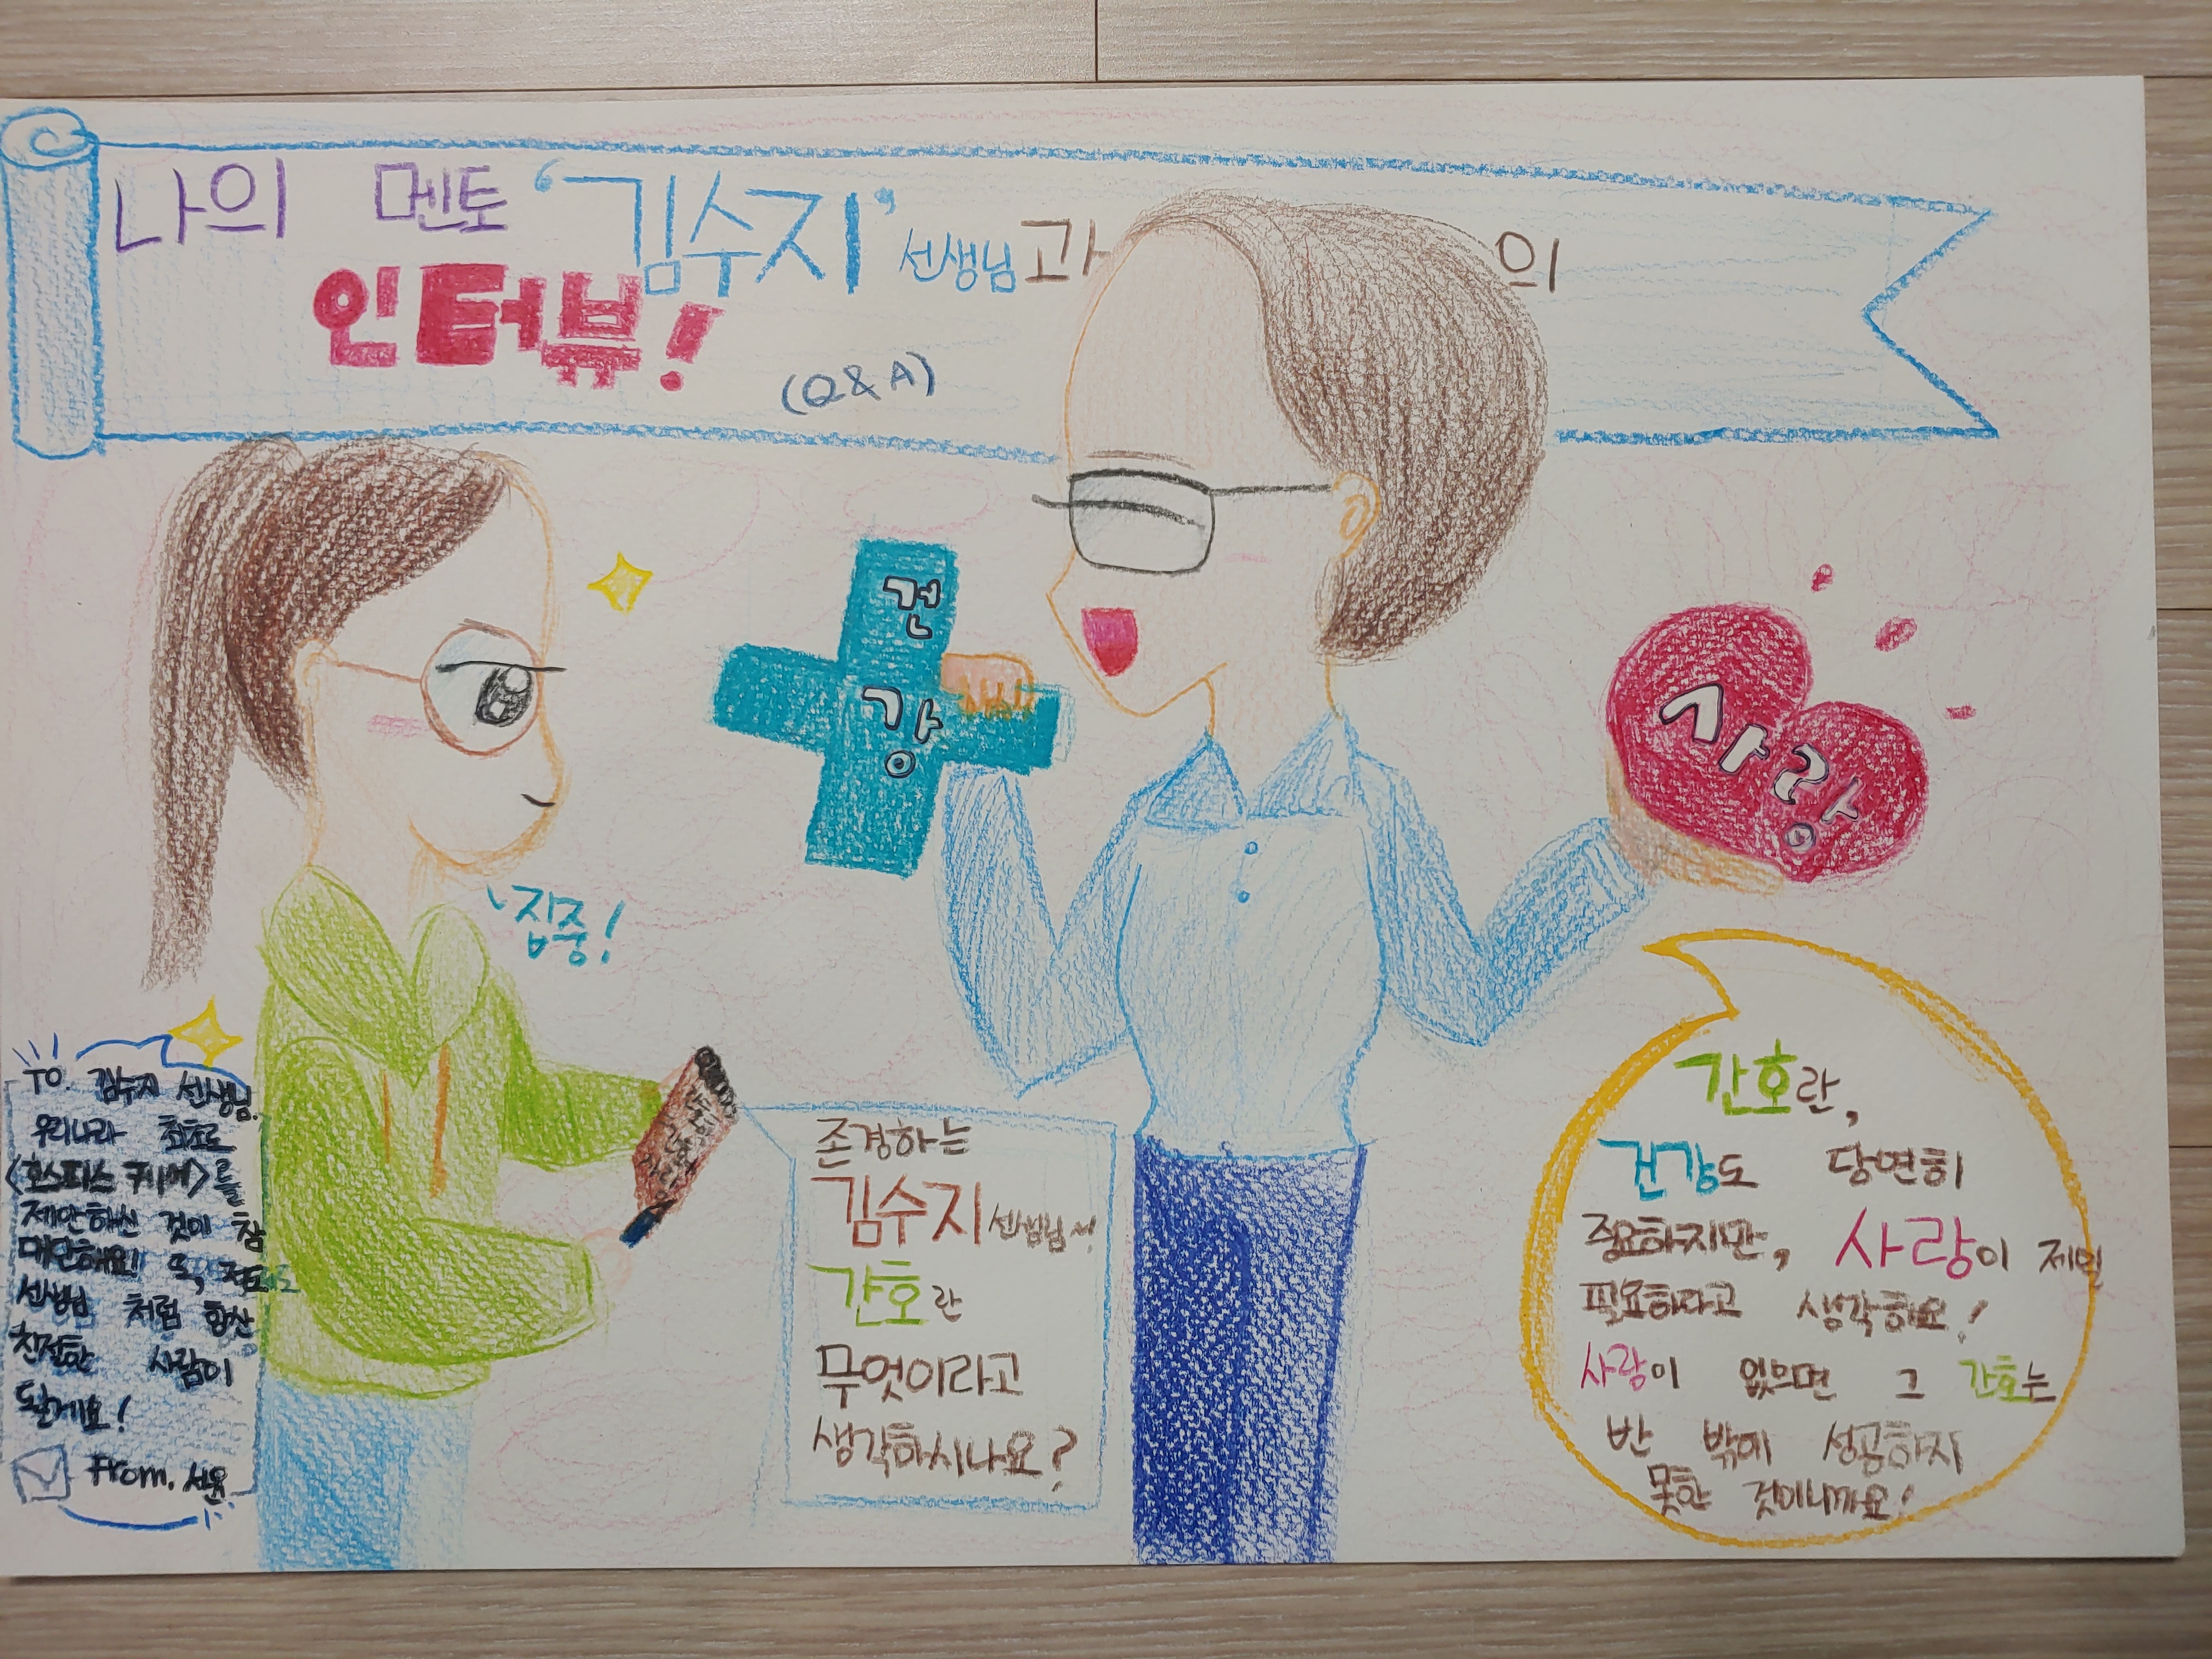 나의 멘토 '김수지' 선생님과 의
인터뷰!
(Q&A)
건
강
사랑
집중!
TO. 김수지 선생님.
우리나라 최초로
<호스피스 케어>를
제안하신 것이 참
대단해요! 또, 저도
선생님 처럼 항상
친절한 사람이
될게요!
From. 서윤.
존경하는
김수지 선생님께서
간호란
무엇이라고
생각하시나요?
간호란,
건강도 당연히
중요하지만, 사랑이 제일
필요하다고 생각해요!
사랑이 없으면 그 간호는
반 밖에 성공하지
못한 것이니까요!